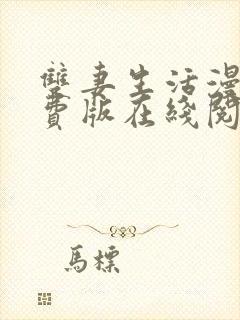 雙妻生活漫
費版在綫閱
馬標